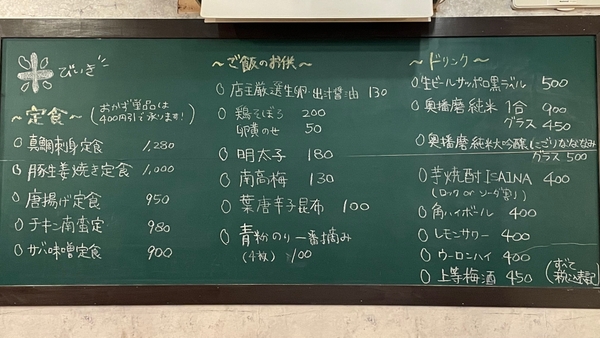 びいき
〜定食〜
(おかず単品は
400円引で承ります!)
○ 真鯛刺身定食 1,280
○ 豚生姜焼き定食 1,000
○ 唐揚げ定食 950
○ チキン南蛮定 980
○ サバ味噌定食 900
〜ご飯のお供〜
○ 店主厳選生卵・出汁醤油 130
○ 鶏そぼろ 200
卵黄のせ 50
○ 明太子 180
○ 南高梅 130
○ 葉唐辛子昆布 100
○ 青粉のり一番摘み
(4枚) 100
〜ドリンク〜
○ 生ビールサッポロ黒ラベル 500
○ 奥播磨純米 1合 900
グラス 450
○ 奥播磨純米大吟醸(にごりなななみ
グラス 500
○ 芋焼酎 ISAINA 400
(ロック or ソーダ割)
○ 角ハイボール 400
○ レモンサワー 400
○ ウーロンハイ 400
○ 上等梅酒 450
(すべて
税込表記)